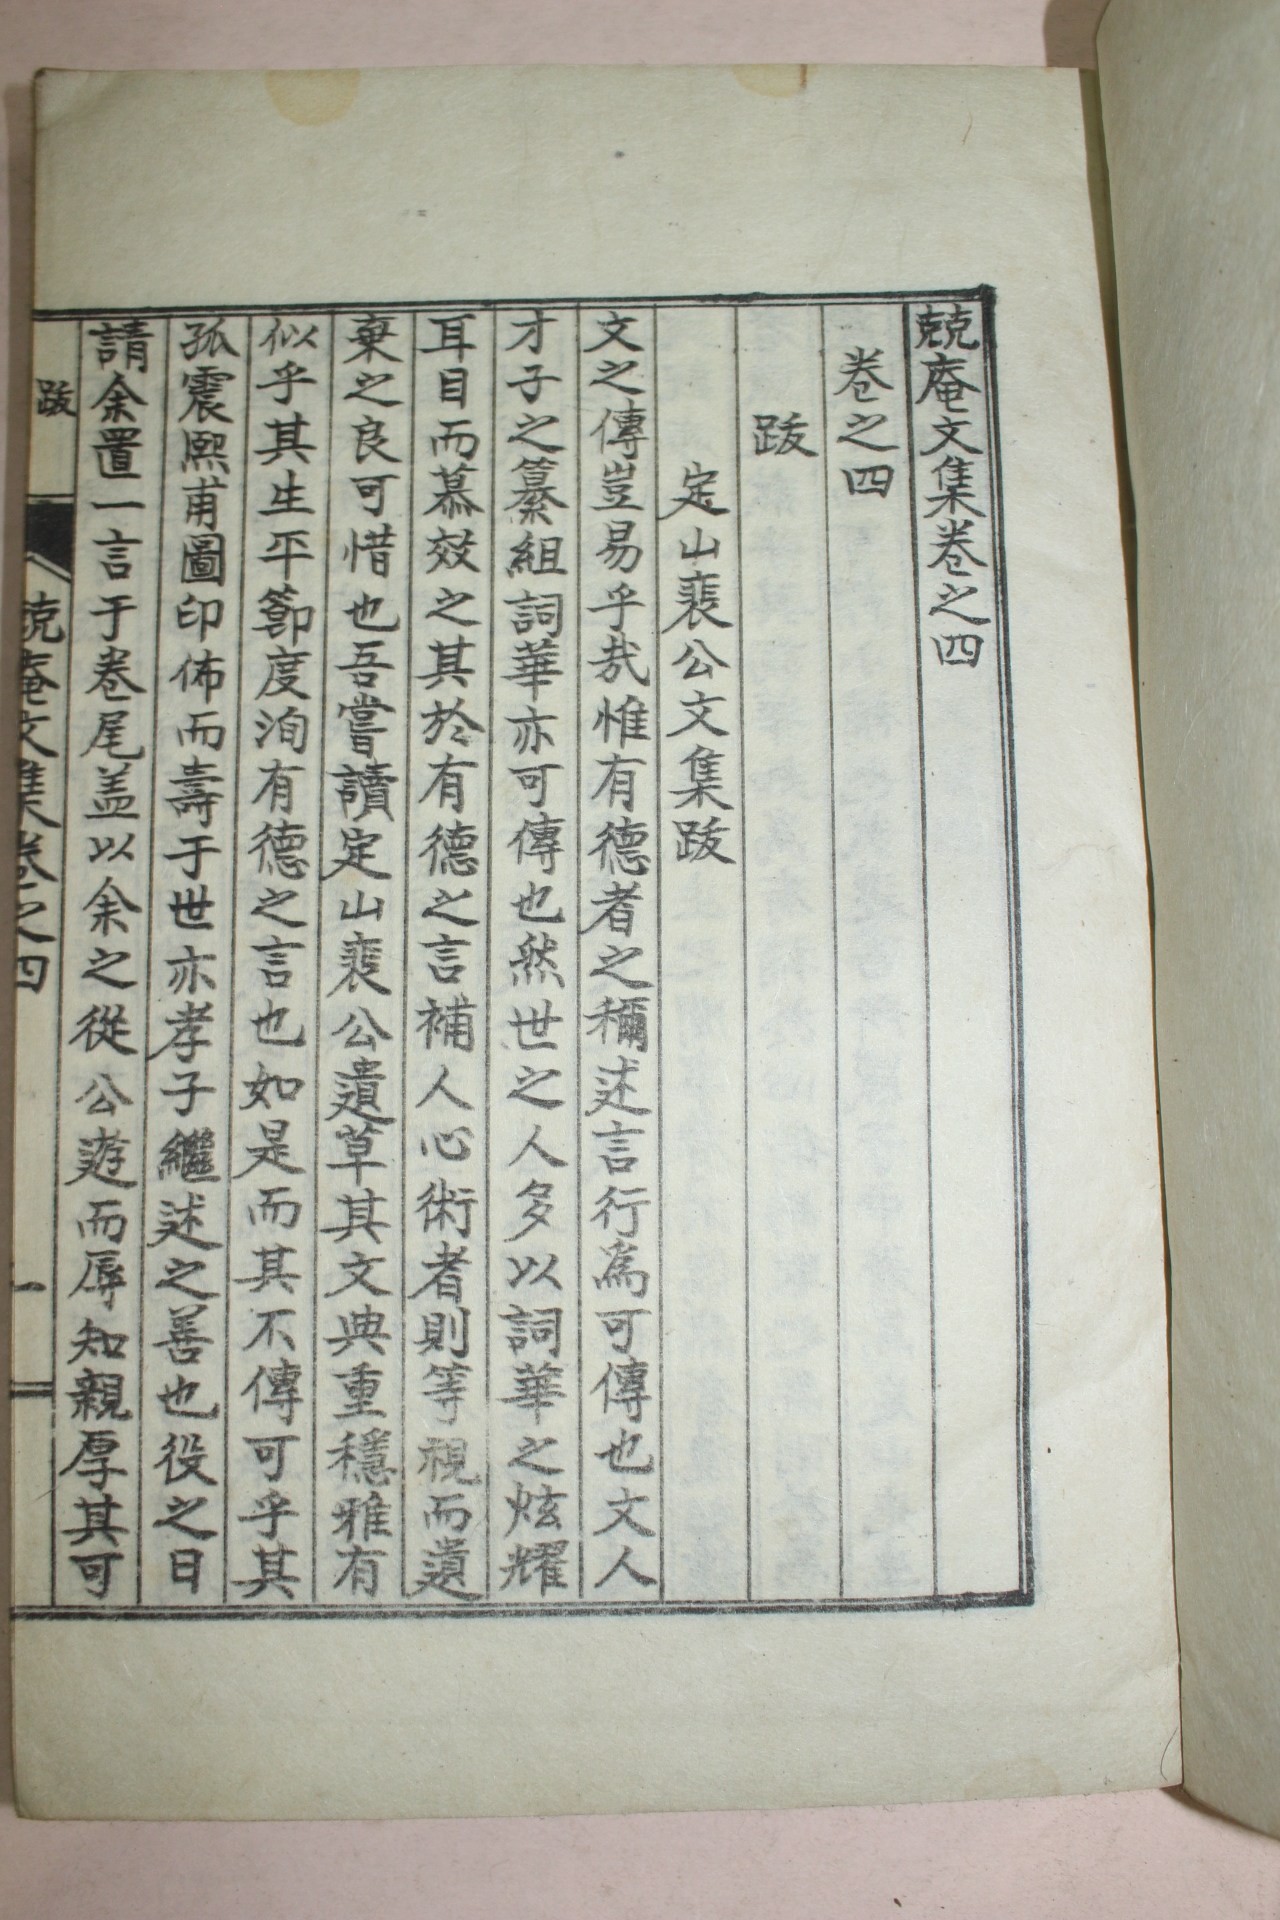 兢庵文集卷之四
卷之四
跋
定山裵公文集跋
文之傳豈易乎哉惟有德者之稱述言行爲可傳也文人
才子之纂組詞華亦可傳也然世之人多以詞華之炫耀
耳目而慕效之其於有德之言補人心術者則等視而遺
棄之良可惜也吾嘗讀定山裵公遺草其文典重穩雅有
似乎其生平節度洵有德之言也如是而其不傳可乎其
孤震熙甫圖印佈而壽于世亦孝子繼述之善也役之日
請余置一言于卷尾盖以余之從公遊而辱知親厚其可
跋 兢庵文集卷之四 一